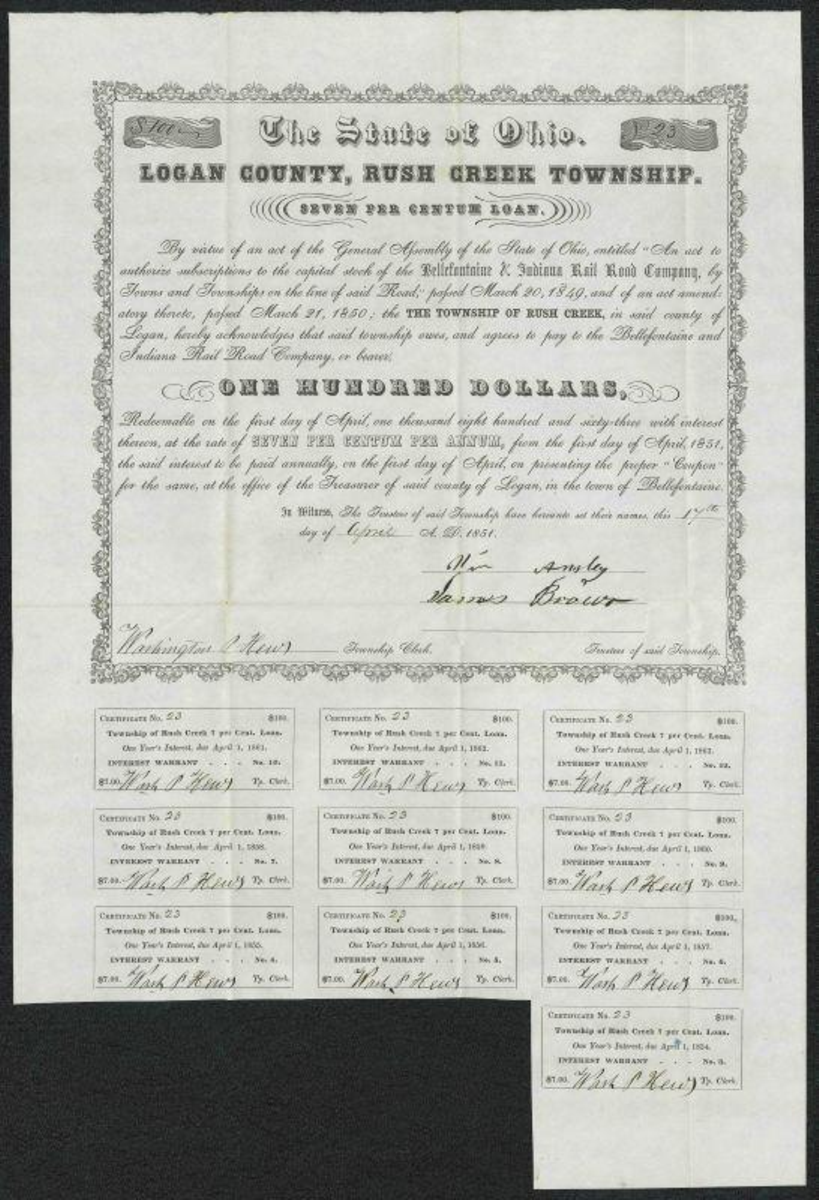 $100
The State of Ohio.
No 23
LOGAN COUNTY, RUSH CREEK TOWNSHIP.
SEVEN PER CENTUM LOAN.
By virtue of an act of the General Assembly of the State of Ohio, entitled "An act to
authorize subscriptions to the capital stock of the Bellefontaine & Indiana Rail Road Company, by
Towns and Townships on the line of said Road," passed March 20, 1849, and of an act amend-
atory thereto, passed March 21, 1850; the THE TOWNSHIP OF RUSH CREEK, in said county of
Logan, hereby acknowledges that said township owes, and agrees to pay to the Bellefontaine and
Indiana Rail Road Company, or bearer,
ONE HUNDRED DOLLARS,
Redeemable on the first day of April, one thousand eight hundred and sixty-three with interest
thereon, at the rate of SEVEN PER CENTUM PER ANNUM, from the first day of April, 1851,
the said interest to be paid annually, on the first day of April, on presenting the proper "Coupon"
for the same, at the office of the Treasurer of said county of Logan, in the town of Bellefontaine.
In Witness, The Trustees of said Township have hereunto set their names, this 17th
day of April A. D. 1851.
Wm Ansley
James Brown
Washington P Hews Township Clerk. Trustees of said Township.
CERTIFICATE No. 23 $100.
Township of Rush Creek 7 per Cent. Loan.
One Year's Interest, due April 1, 1861.
INTEREST WARRANT - - - No. 10.
$7.00. Wash P Hews Tp. Clerk.
CERTIFICATE No. 23 $100.
Township of Rush Creek 7 per Cent. Loan.
One Year's Interest, due April 1, 1862.
INTEREST WARRANT - - - No. 11.
$7.00. Wash P Hews Tp. Clerk.
CERTIFICATE No. 23 $100.
Township of Rush Creek 7 per Cent. Loan.
One Year's Interest, due April 1, 1863.
INTEREST WARRANT - - - No. 12.
$7.00. Wash P Hews Tp. Clerk.
CERTIFICATE No. 23 $100.
Township of Rush Creek 7 per Cent. Loan.
One Year's Interest, due April 1, 1858.
INTEREST WARRANT - - - No. 7.
$7.00. Wash P Hews Tp. Clerk.
CERTIFICATE No. 23 $100.
Township of Rush Creek 7 per Cent. Loan.
One Year's Interest, due April 1, 1859.
INTEREST WARRANT - - - No. 8.
$7.00. Wash P Hews Tp. Clerk.
CERTIFICATE No. 23 $100.
Township of Rush Creek 7 per Cent. Loan.
One Year's Interest, due April 1, 1860.
INTEREST WARRANT - - - No. 9.
$7.00. Wash P Hews Tp. Clerk.
CERTIFICATE No. 23 $100.
Township of Rush Creek 7 per Cent. Loan.
One Year's Interest, due April 1, 1855.
INTEREST WARRANT - - - No. 4.
$7.00. Wash P Hews Tp. Clerk.
CERTIFICATE No. 23 $100.
Township of Rush Creek 7 per Cent. Loan.
One Year's Interest, due April 1, 1856.
INTEREST WARRANT - - - No. 5.
$7.00. Wash P Hews Tp. Clerk.
CERTIFICATE No. 23 $100.
Township of Rush Creek 7 per Cent. Loan.
One Year's Interest, due April 1, 1857.
INTEREST WARRANT - - - No. 6.
$7.00. Wash P Hews Tp. Clerk.
CERTIFICATE No. 23 $100.
Township of Rush Creek 7 per Cent. Loan.
One Year's Interest, due April 1, 1854.
INTEREST WARRANT - - - No. 3.
$7.00. Wash P Hews Tp. Clerk.